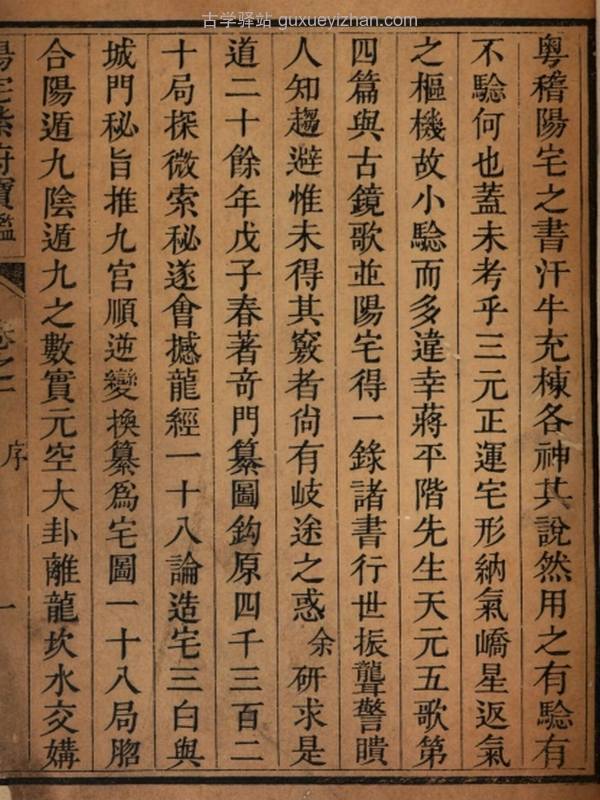 古学驿站 guxueyizhan.com
粵稽陽宅之書汗牛充棟各神其說然用之有驗有
不驗何也蓋未考乎三元正運宅形納氣嶠星返氣
之樞機故小驗而多違幸蔣平階先生天元五歌第
四篇與古鏡歌並陽宅得一錄諸書行世振聾警瞶
人知趨避惟未得其竅者尙有岐途之惑余研求是
道二十餘年戊子春著竒門纂圖鈎原四千三百二
十局探微索秘遂會撼龍經一十八論造宅三白與
城門秘旨推九宮順逆變換纂爲宅圖一十八局脗
合陽遁九陰遁九之數實元空大卦離龍坎水交媾
陽宅紫府寶鑑
卷之二
序
一